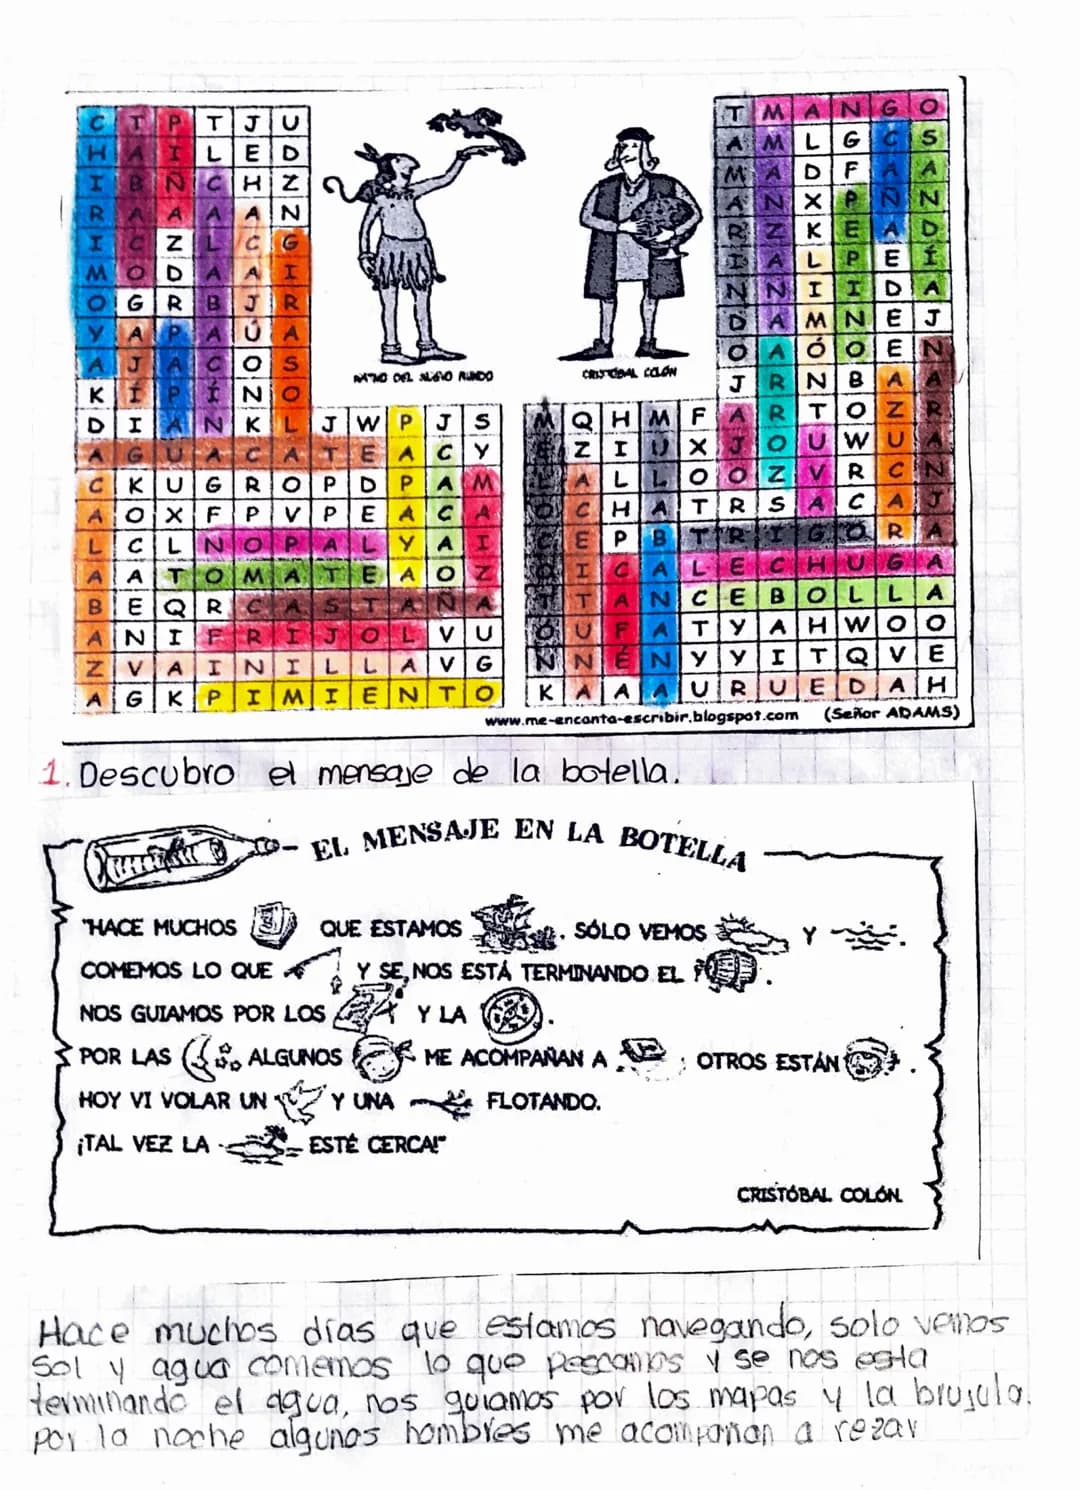 C T P T J U
H A I L E D
I B Ñ C H Z
R A A A A N
I C Z L C G
M O D A A I
O G R B J R
Y A P A Ú A
A J A C O S
K Í P Í N O
D I A N K L J W P J S
A G U A C A T E A C Y
C K U G R O P D P A M
A O X F P V P E A C A
L C L N O P A L Y A I
A A T O M A T E A O Z
B E Q R C A S T A Ñ A
A N I F R I J O L V U
Z V A I N I L L A V G
A G K P I M I E N T O
NATIVO DEL NUEVO MUNDO
CRISTÓBAL COLÓN
T M A N G O
A M L G C S
M A D F A A
A N X P Ñ N
R Z K E A D
I A L P E Í
N N I I D A
D A M N E J
O A Ó O E N
J R N B A A
M Q H M F A R T O Z R
E Z I U X J O U W U A
L A L L O O Z V R C N
O C H A T R S A C A J
C E P B T R I G O R A
O I C A L E C H U G A
T T A N C E B O L L A
O U F A T Y A H W O O
N N É N Y Y I T Q V E
K A A A U R U E D A H
www.me-encanta-escribir.blogspot.com (Señor ADAMS)
1. Descubro el mensaje de la botella.
EL MENSAJE EN LA BOTELLA
"HACE MUCHOS QUE ESTAMOS . SÓLO VEMOS Y .
COMEMOS LO QUE Y SE NOS ESTÁ TERMINANDO EL .
NOS GUIAMOS POR LOS Y LA .
POR LAS ALGUNOS ME ACOMPAÑAN A ; OTROS ESTÁN .
HOY VI VOLAR UN Y UNA FLOTANDO.
¡TAL VEZ LA ESTÉ CERCA!"
CRISTÓBAL COLÓN
Hace muchos días que estamos navegando, solo vemos
Sol y agua comemos lo que pescamos y se nos esta
terminando el agua, nos guiamos por los mapas y la brujula.
Por la noche algunos hombres me acompañan a rezar